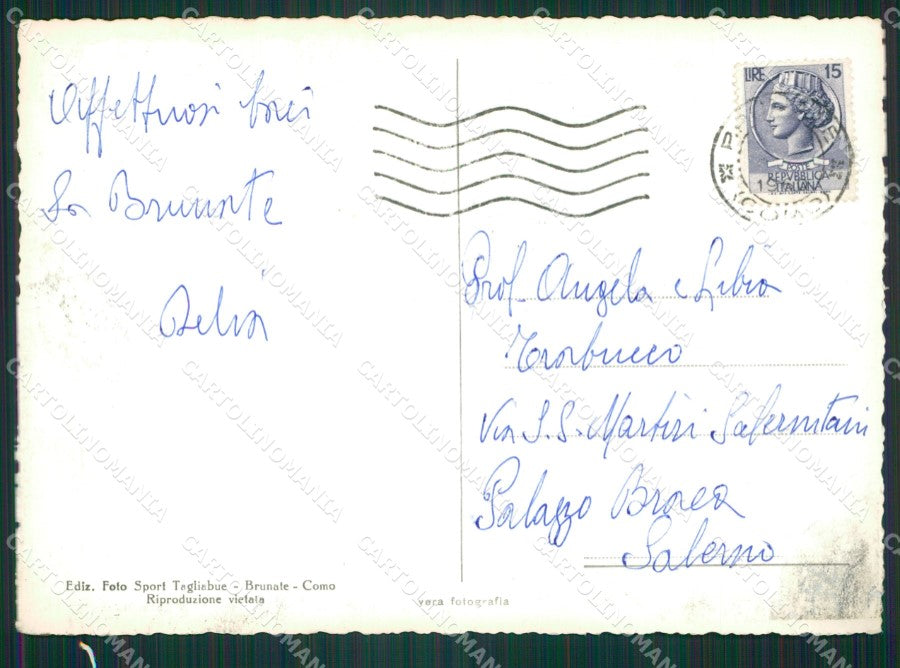 Affettuosi baci
da Brunate
Delia
LIRE 15
POSTE
REPVBBLICA
ITALIANA
Prof Angela e Libia
Trabucco
Via S.S. Martiri Salernitani
Palazzo Braca
Salerno
Ediz. Foto Sport Tagliabue - Brunate - Como
Riproduzione vietata
vera fotografia
CARTOLINOMANIA